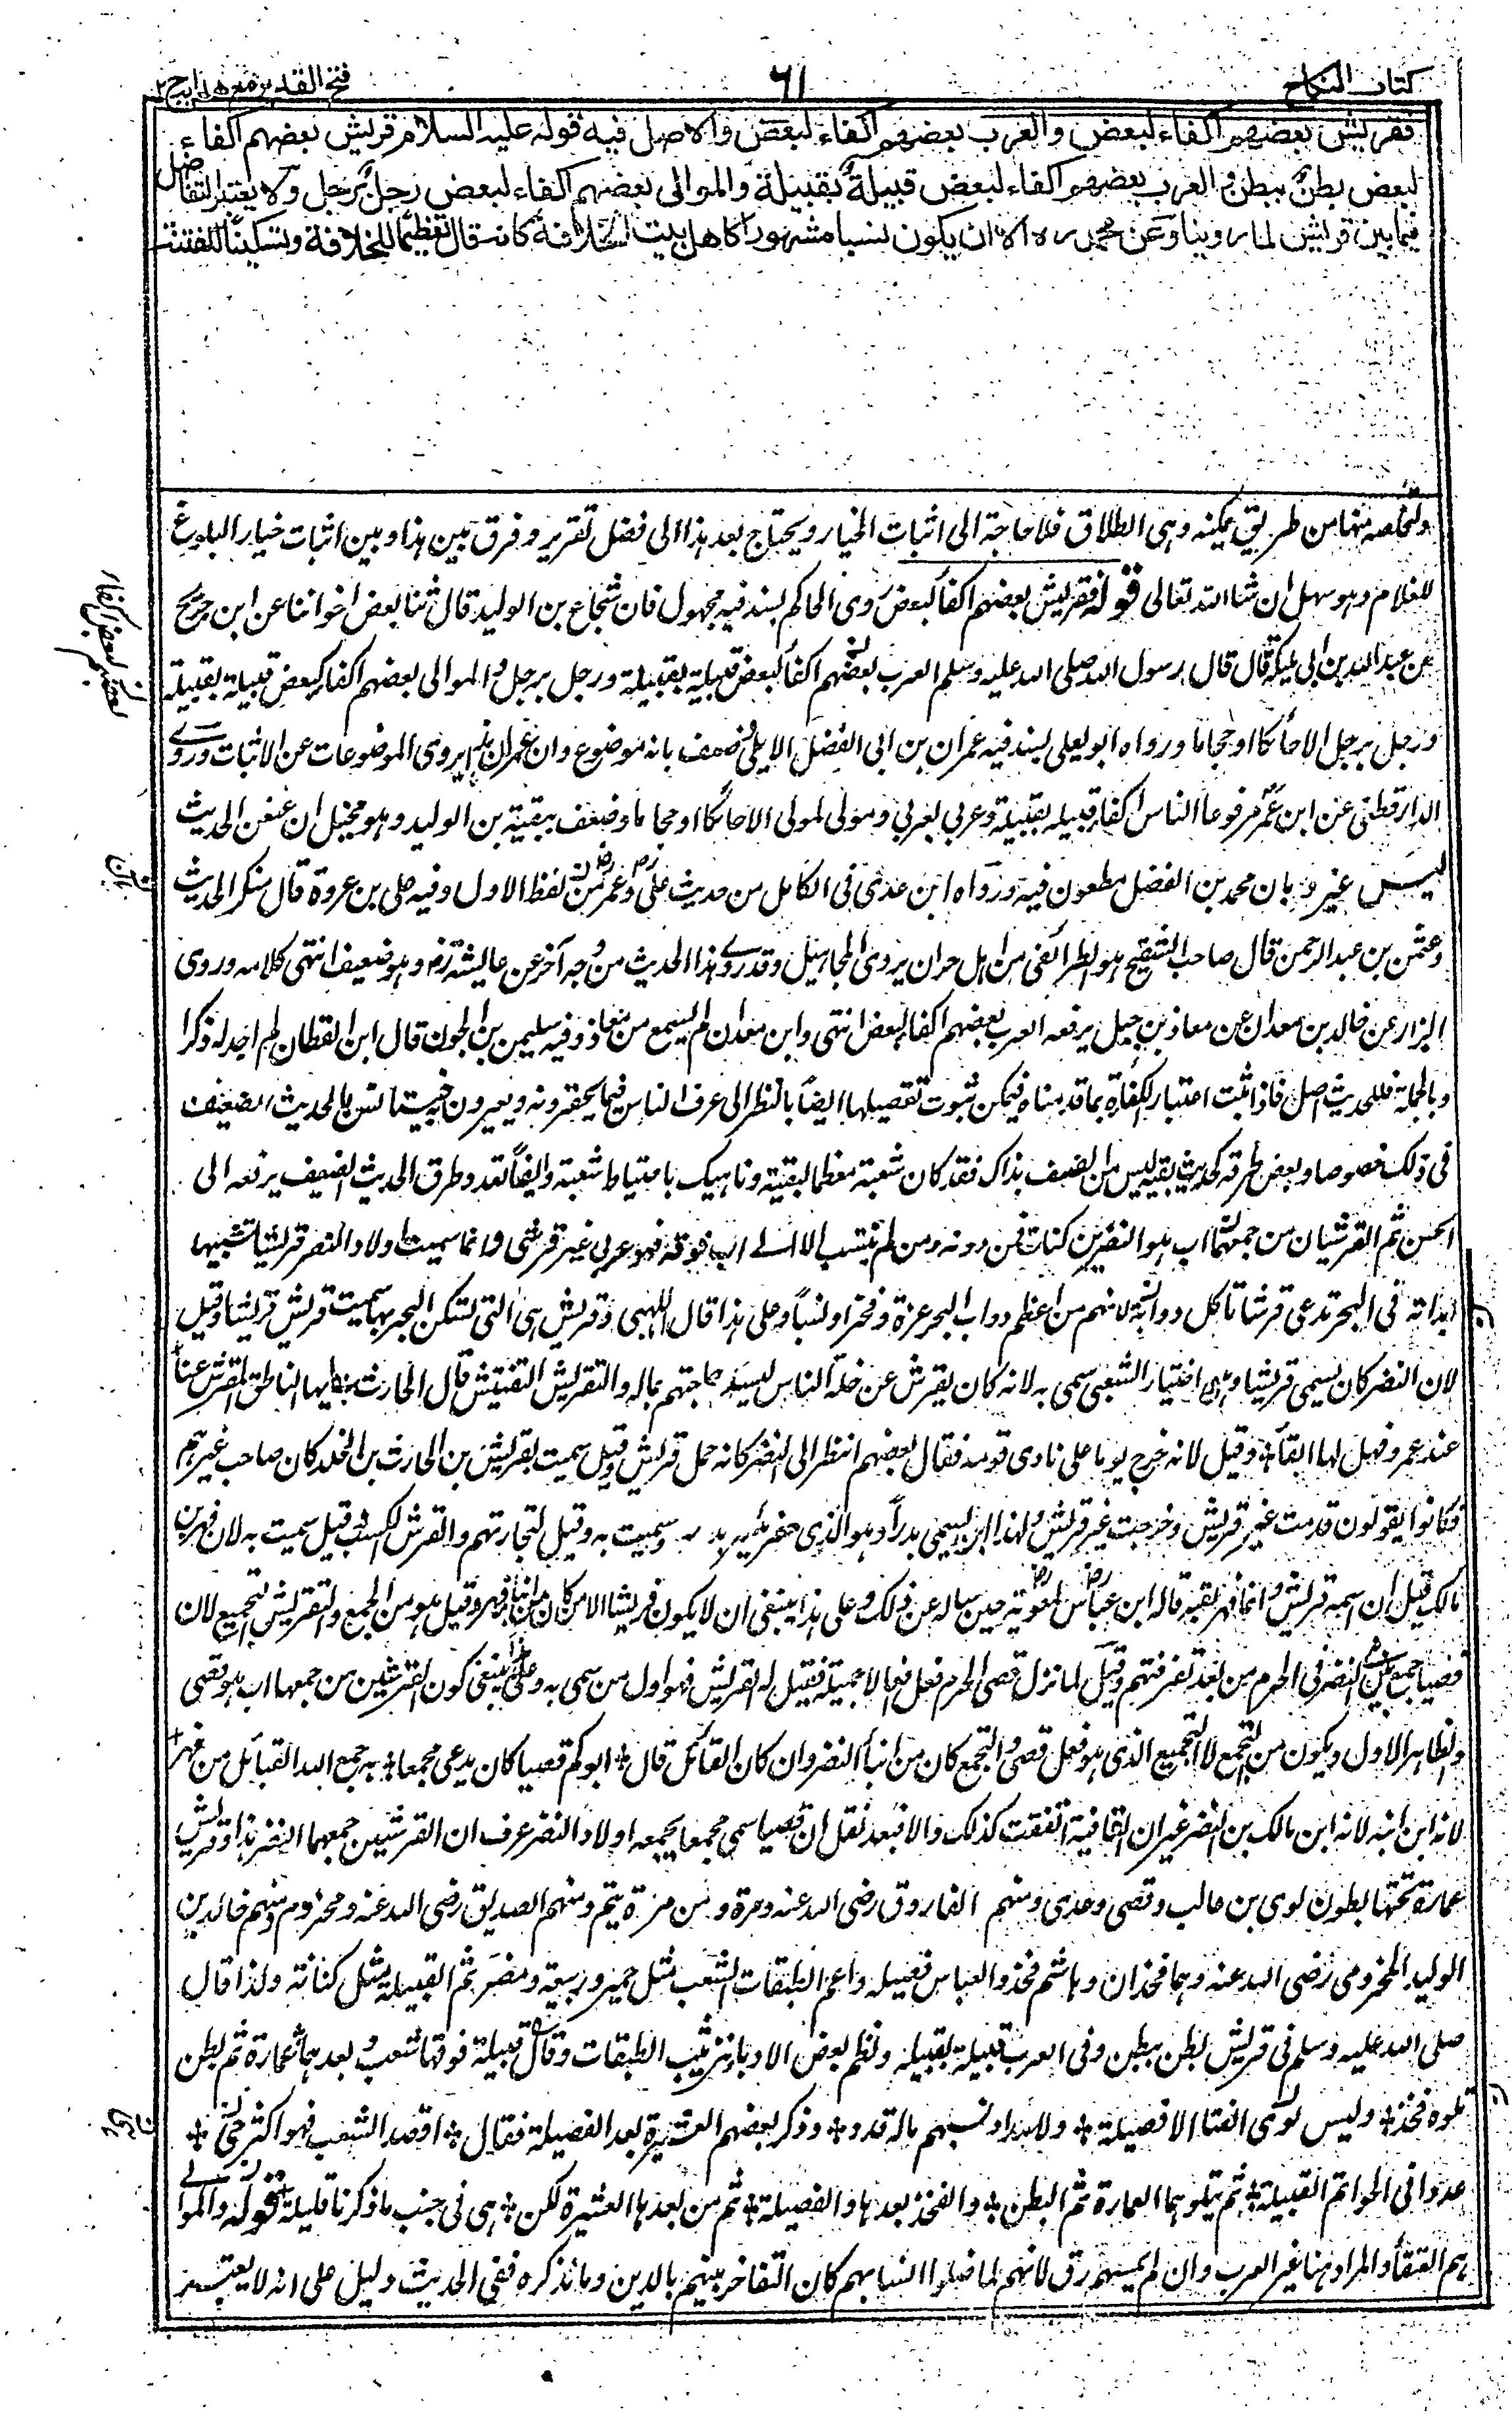 كتاب النكاح
٦١
فتح القدير مع هداية ج٢
فقريش بعضهم اكفاء لبعض والعرب بعضهم اكفاء لبعض والاصل فيه قوله عليه السلام قريش بعضهم اكفاء
لبعض بطن ببطن والعرب بعضهم اكفاء لبعض قبيلة بقبيلة والموالى بعضهم اكفاء لبعض رجل برجل ولا يعتبر التفاضل
فيما بين قريش لما روينا وعن محمد ره الا ان يكون نسبا مشهورا كاهل بيت الخلافة كانه قال تعظيما للخلافة وتسكينا للفتنة
وتخلصه منها من طريق يمكنه وهى الطلاق فلا حاجة الى اثبات الخيار ويحتاج بعد هذا الى فضل تقرير وفرق بين هذا وبين اثبات خيار البلوغ
للغلام وهو سهل ان شاء الله تعالى قوله فقريش بعضهم اكفأ لبعض روى الحاكم بسند فيه مجهول فان شجاع بن الوليد قال ثنا بعض اخواننا عن ابن جريج
عن عبد الله بن ابى مليكة قال قال رسول الله صلى الله عليه وسلم العرب بعضهم اكفأ لبعض قبيلة بقبيلة ورجل برجل والموالى بعضهم اكفأ لبعض قبيلة بقبيلة
ورجل برجل الا حائكا او حجاما ورواه ابو يعلى بسند فيه عمران بن ابى الفضل الايلى وضعف بانه موضوع وان عمران هذا يروى الموضوعات عن الاثبات وروى
الدارقطنى عن ابن عمر مرفوعا الناس اكفأ قبيلة بقبيلة وعربى لعربى ومولى لمولى الا حائكا او حجاما وضعف ببقية بن الوليد وهو مخيل ان عنعن الحديث
ليس غير وبان محمد بن الفضل مطعون فيه ورواه ابن عدى فى الكامل من حديث على وعمر رض لفظ الاول وفيه على بن عروة قال منكر الحديث
وعثمن بن عبد الرحمن قال صاحب التنقيح هو الطرائفى من اهل حران يروى المجاهيل وقد روى هذا الحديث من وجه آخر عن عائشة رض وهو ضعيف انتهى كلامه وروى
البزار عن خالد بن معدان عن معاذ بن جبل يرفعه العرب بعضهم اكفأ لبعض انتهى وابن معدان لم يسمع من معاذ وفيه سليمن بن ابى الجون قال ابن القطان لم اجد له ذكرا
وبالجملة فللحديث اصل فاذا ثبت اعتبار الكفاءة بما قدمناه فيمكن ثبوت تفصيلها ايضا بالنظر الى عرف الناس فيما يحقرونه ويعيرون فيستأنس بالحديث الضعيف
فى ذلك خصوصا وبعض طرقه كحديث بقية ليس من الضعف بذاك فقد كان شعبة معظما لبقية وناهيك باحتياط شعبة وايضا تعدد طرق الحديث الضعيف يرفعه الى
الحسن ثم القرشيان من جمعهما اب هو النضر بن كنانة فمن دونه ومن لم ينتسب الا الى اب فوقه فهو عربى غير قرشى وانما سميت اولاد النضر قريشا تشبيها
بدابة فى البحر تدعى قرشا تأكل دوابه لانهم من اعظم دواب البحر عزة وفخرا ونسبا وعلى هذا قال اللهبى وقريش هى التى تسكن البحر بها سميت قريش قريشا وقيل
لان النضر كان يسمى قريشا وهو اختيار الشعبى سمى به لانه كان يقرش عن خلة الناس ليسد حاجتهم بماله والتقريش التفتيش قال الحارث ايها الناطق المقرش عنا
عند عمرو فهل لها ابقاء وقيل لانه خرج يوما على نادى قومه فقال بعضهم انظر الى النضر كانه جمل قريش وقيل سميت بقريش بن الحارث بن المخلد كان صاحب عيرهم
فكانوا يقولون قدمت عير قريش وخرجت عير قريش ولهذا ابن يسمى بدرا وهو الذى حفر بئر بدر وسميت به وقيل لتجارتهم والقرش الكسب قيل سميت به لان فهر بن
مالك قيل ان اسمه قريش وانما فهر لقبه قاله ابن عباس لمعوية حين ساله عن ذلك وعلى هذا ينبغى ان لا يكون قريشا الا من كان من ابناء فهر وقيل هو من الجمع والتقريش التجميع لان
قصيا جمع بنى النضر فى الحرم من بعد تفرقتهم وقيل لما نزل قصى الحرم فعل فعالا جميلة فقيل له القريش فهو اول من سمى به وعلى هذا ينبغى كون القرشيين من جمعهما اب هو قصى
والظاهر الاول ويكون من التجمع لا التجميع الذى هو فعل قصى والتجمع كان من ابناء النضر وان كان القائل قال ؞ ابوكم قصيا كان يدعى مجمعا ؞ به جمع الله القبائل من فهر ؞
لانه ابن ابنه لانه ابن مالك بن النضر غير ان القافية اتفقت كذلك والا فبعد نقل ان قصيا سمى مجمعا بجمعه اولاد النضر عرف ان القرشيين جمعهما النضر هذا وقريش
عمارة تحتها بطون لوى بن غالب وقصى وعدى ومنهم الفاروق رضى الله عنه ومرة ومن مرة تيم ومنهم الصديق رضى الله عنه ومخزوم ومنهم خالد بن
الوليد المخزومى رضى الله عنه وهما فخذان وهاشم فخذ والعباس فصيلة واعم الطبقات الشعب مثل حمير وربيعة ومضر ثم القبيلة مثل كنانة ولذا قال
صلى الله عليه وسلم فى قريش بطن ببطن وفى العرب قبيلة بقبيلة ونظم بعض الادباء ترتيب الطبقات وقال قبيلة فوقها شعب وبعدهما ؞ عمارة ثم بطن
تلوه فخذ ؞ وليس يؤوى الفتى الا فصيلة ؞ ولا سداد لسهم ماله قذذ ؞ وذكر بعضهم العشيرة بعد الفصيلة فقال ؞ اقصد الشعب فهو اكثر حى ؞
عددا فى الحواء ثم القبيلة ؞ ثم يتلوهما العمارة ثم البطن ؞ والفخذ بعدها والفصيلة ؞ ثم من بعدها العشيرة لكن ؞ هى فى جنب ما ذكرنا قليلة ؞ قوله والموالى
هم العتقاء والمراد هنا غير العرب وان لم يمسهم رق لانهم لما ضلوا انسابهم كان التفاخر بينهم بالدين وما نذكره ففى الحديث دليل على انه لا يعتبر